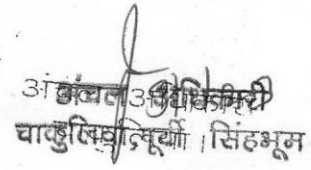 अंचल अधिकारी
चाकुलिया, पूर्वी सिंहभूम